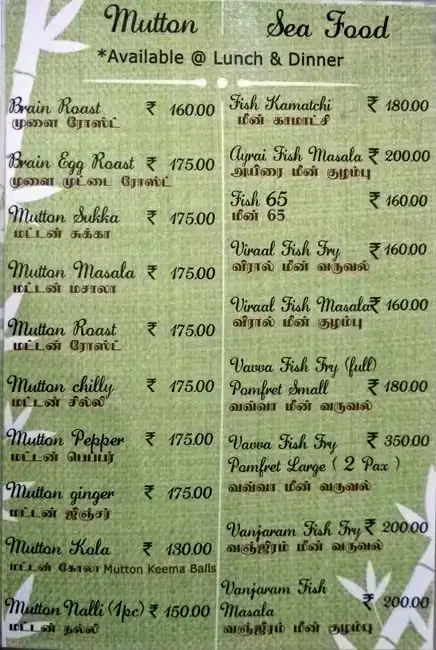 Mutton
*Available @ Lunch & Dinner
Brain Roast ₹ 160.00
முளை ரோஸ்ட்
Brain Egg Roast ₹ 175.00
முளை முட்டை ரோஸ்ட்
Mutton Sukka ₹ 175.00
மட்டன் சுக்கா
Mutton Masala ₹ 175.00
மட்டன் மசாலா
Mutton Roast ₹ 175.00
மட்டன் ரோஸ்ட்
Mutton chilly ₹ 175.00
மட்டன் சில்லி
Mutton Pepper ₹ 175.00
மட்டன் பெப்பர்
Mutton ginger ₹ 175.00
மட்டன் ஜிஞ்சர்
Mutton Kola ₹ 130.00
மட்டன் கோலா Mutton Keema Balls
Mutton Nalli (1pc) ₹ 150.00
மட்டன் நல்லி
Sea Food
Fish Kamatchi ₹ 180.00
மீன் காமாட்சி
Ayrai Fish Masala ₹ 200.00
அயிரை மீன் குழம்பு
Fish 65 ₹ 160.00
மீன் 65
Viraal Fish Fry ₹ 160.00
விரால் மீன் வருவல்
Viraal Fish Masala ₹ 160.00
விரால் மீன் குழம்பு
Vavva Fish Fry (full)
Pomfret Small ₹ 180.00
வவ்வா மீன் வருவல்
Vavva Fish Fry ₹ 350.00
Pomfret Large ( 2 Pax )
வவ்வா மீன் வருவல்
Vanjaram Fish Fry ₹ 200.00
வஞ்ஜீரம் மீன் வருவல்
Vanjaram Fish
Masala ₹ 200.00
வஞ்ஜீரம் மீன் குழம்பு